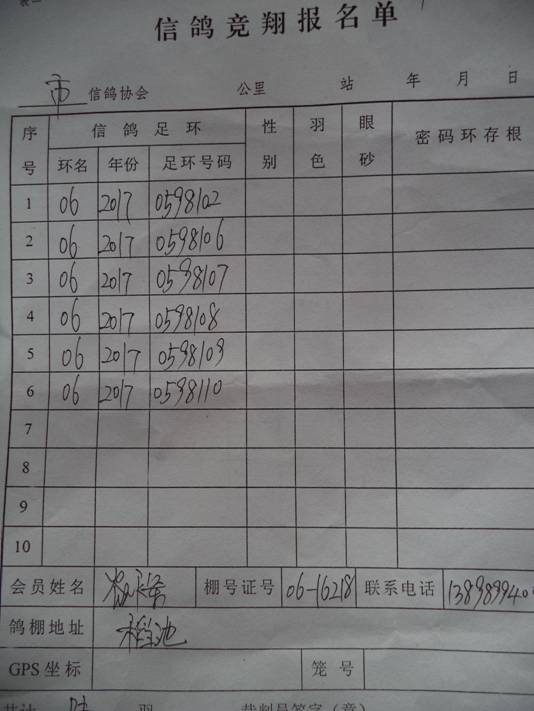 信鸽竞翔报名单
市 信鸽协会 公里 站 年 月 日
序号 信鸽足环 性别 羽色 眼砂 密码环存根
环名 年份 足环号码
1 06 2017 0598102
2 06 2017 0598106
3 06 2017 0598107
4 06 2017 0598108
5 06 2017 0598109
6 06 2017 0598110
7
8
9
10
会员姓名 棚号证号 06-16218 联系电话
鸽棚地址 稻池
GPS坐标 笼号
共计 陆 羽 裁判员签字（章）